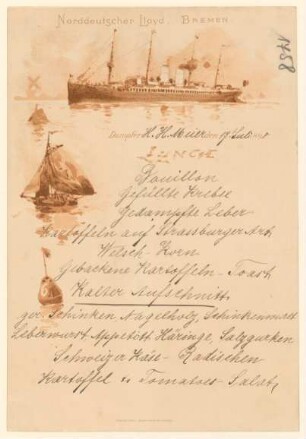 Norddeutscher Lloyd. BREMEN
1758
Dampfer H. H. Meier den 17 Juli
LUNCH
Bouillon
Gefüllte Krebse
Gedämpfte Leber
Kartoffeln auf Strassburger Art
Welsch-Korn
Gebackene Kartoffeln - Toast
Kalter Aufschnitt
ger. Schinken Nagelholz, Schinkenwurst
Leberwurst Appetitt Häringe, Salzgurken
Schweizer Käse - Radischen
Kartoffel & Tomatoes-Salat,